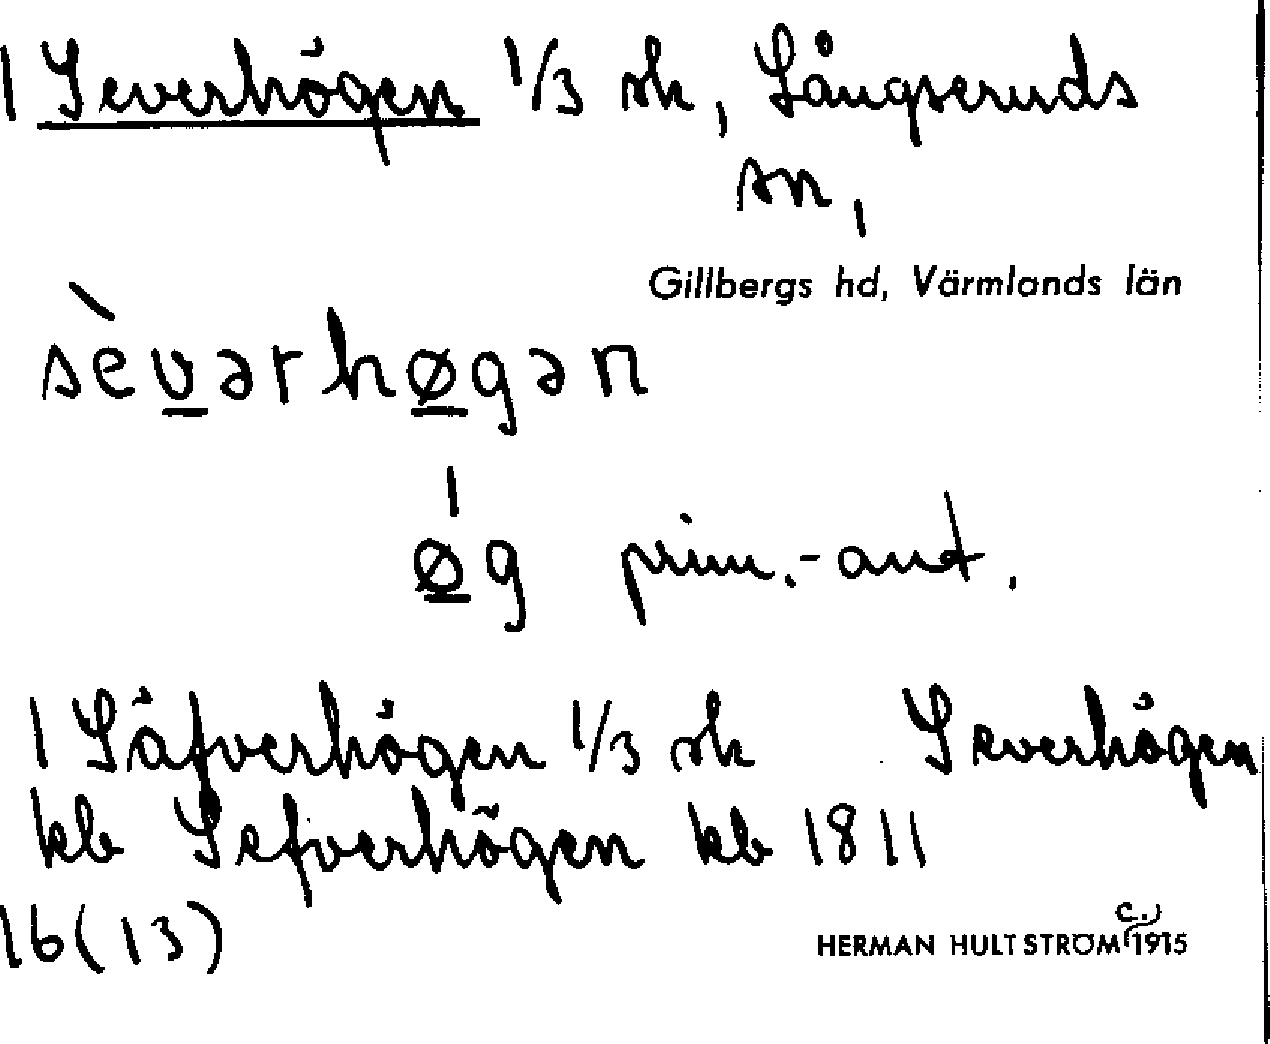 1 Severhögen 1/3 sk, Långseruds
sn,
Gillbergs hd, Värmlands län
sèvərhøgən
øg prim.-ant.
1 Säfverhögen 1/3 sk Severhögen
kb Sefverhögen kb 1811
16(13)
c.
HERMAN HULTSTRÖM 1915